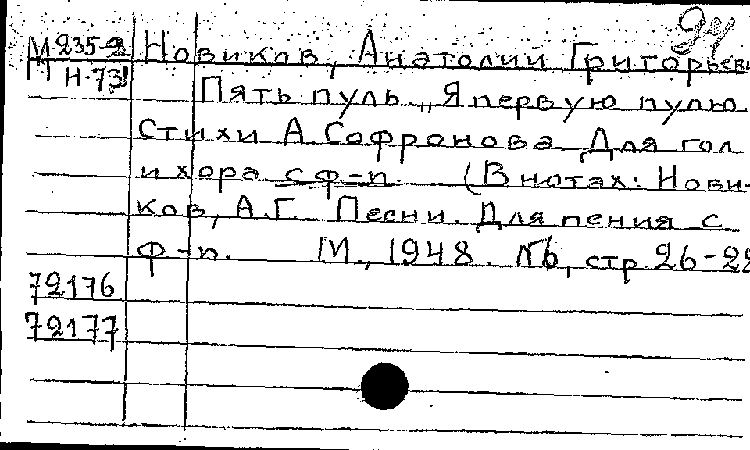 94
М 235-2 Новиков, Анатолий Григорьеви
Н-73 Пять пуль „Я первую пулю
Стихи А. Софронова Для гол
и хора с ф-п. (В нотах: Нови-
ков, А.Г. Песни. Для пения с
ф-п. М., 1948. №6, стр. 26-28
72176
72177